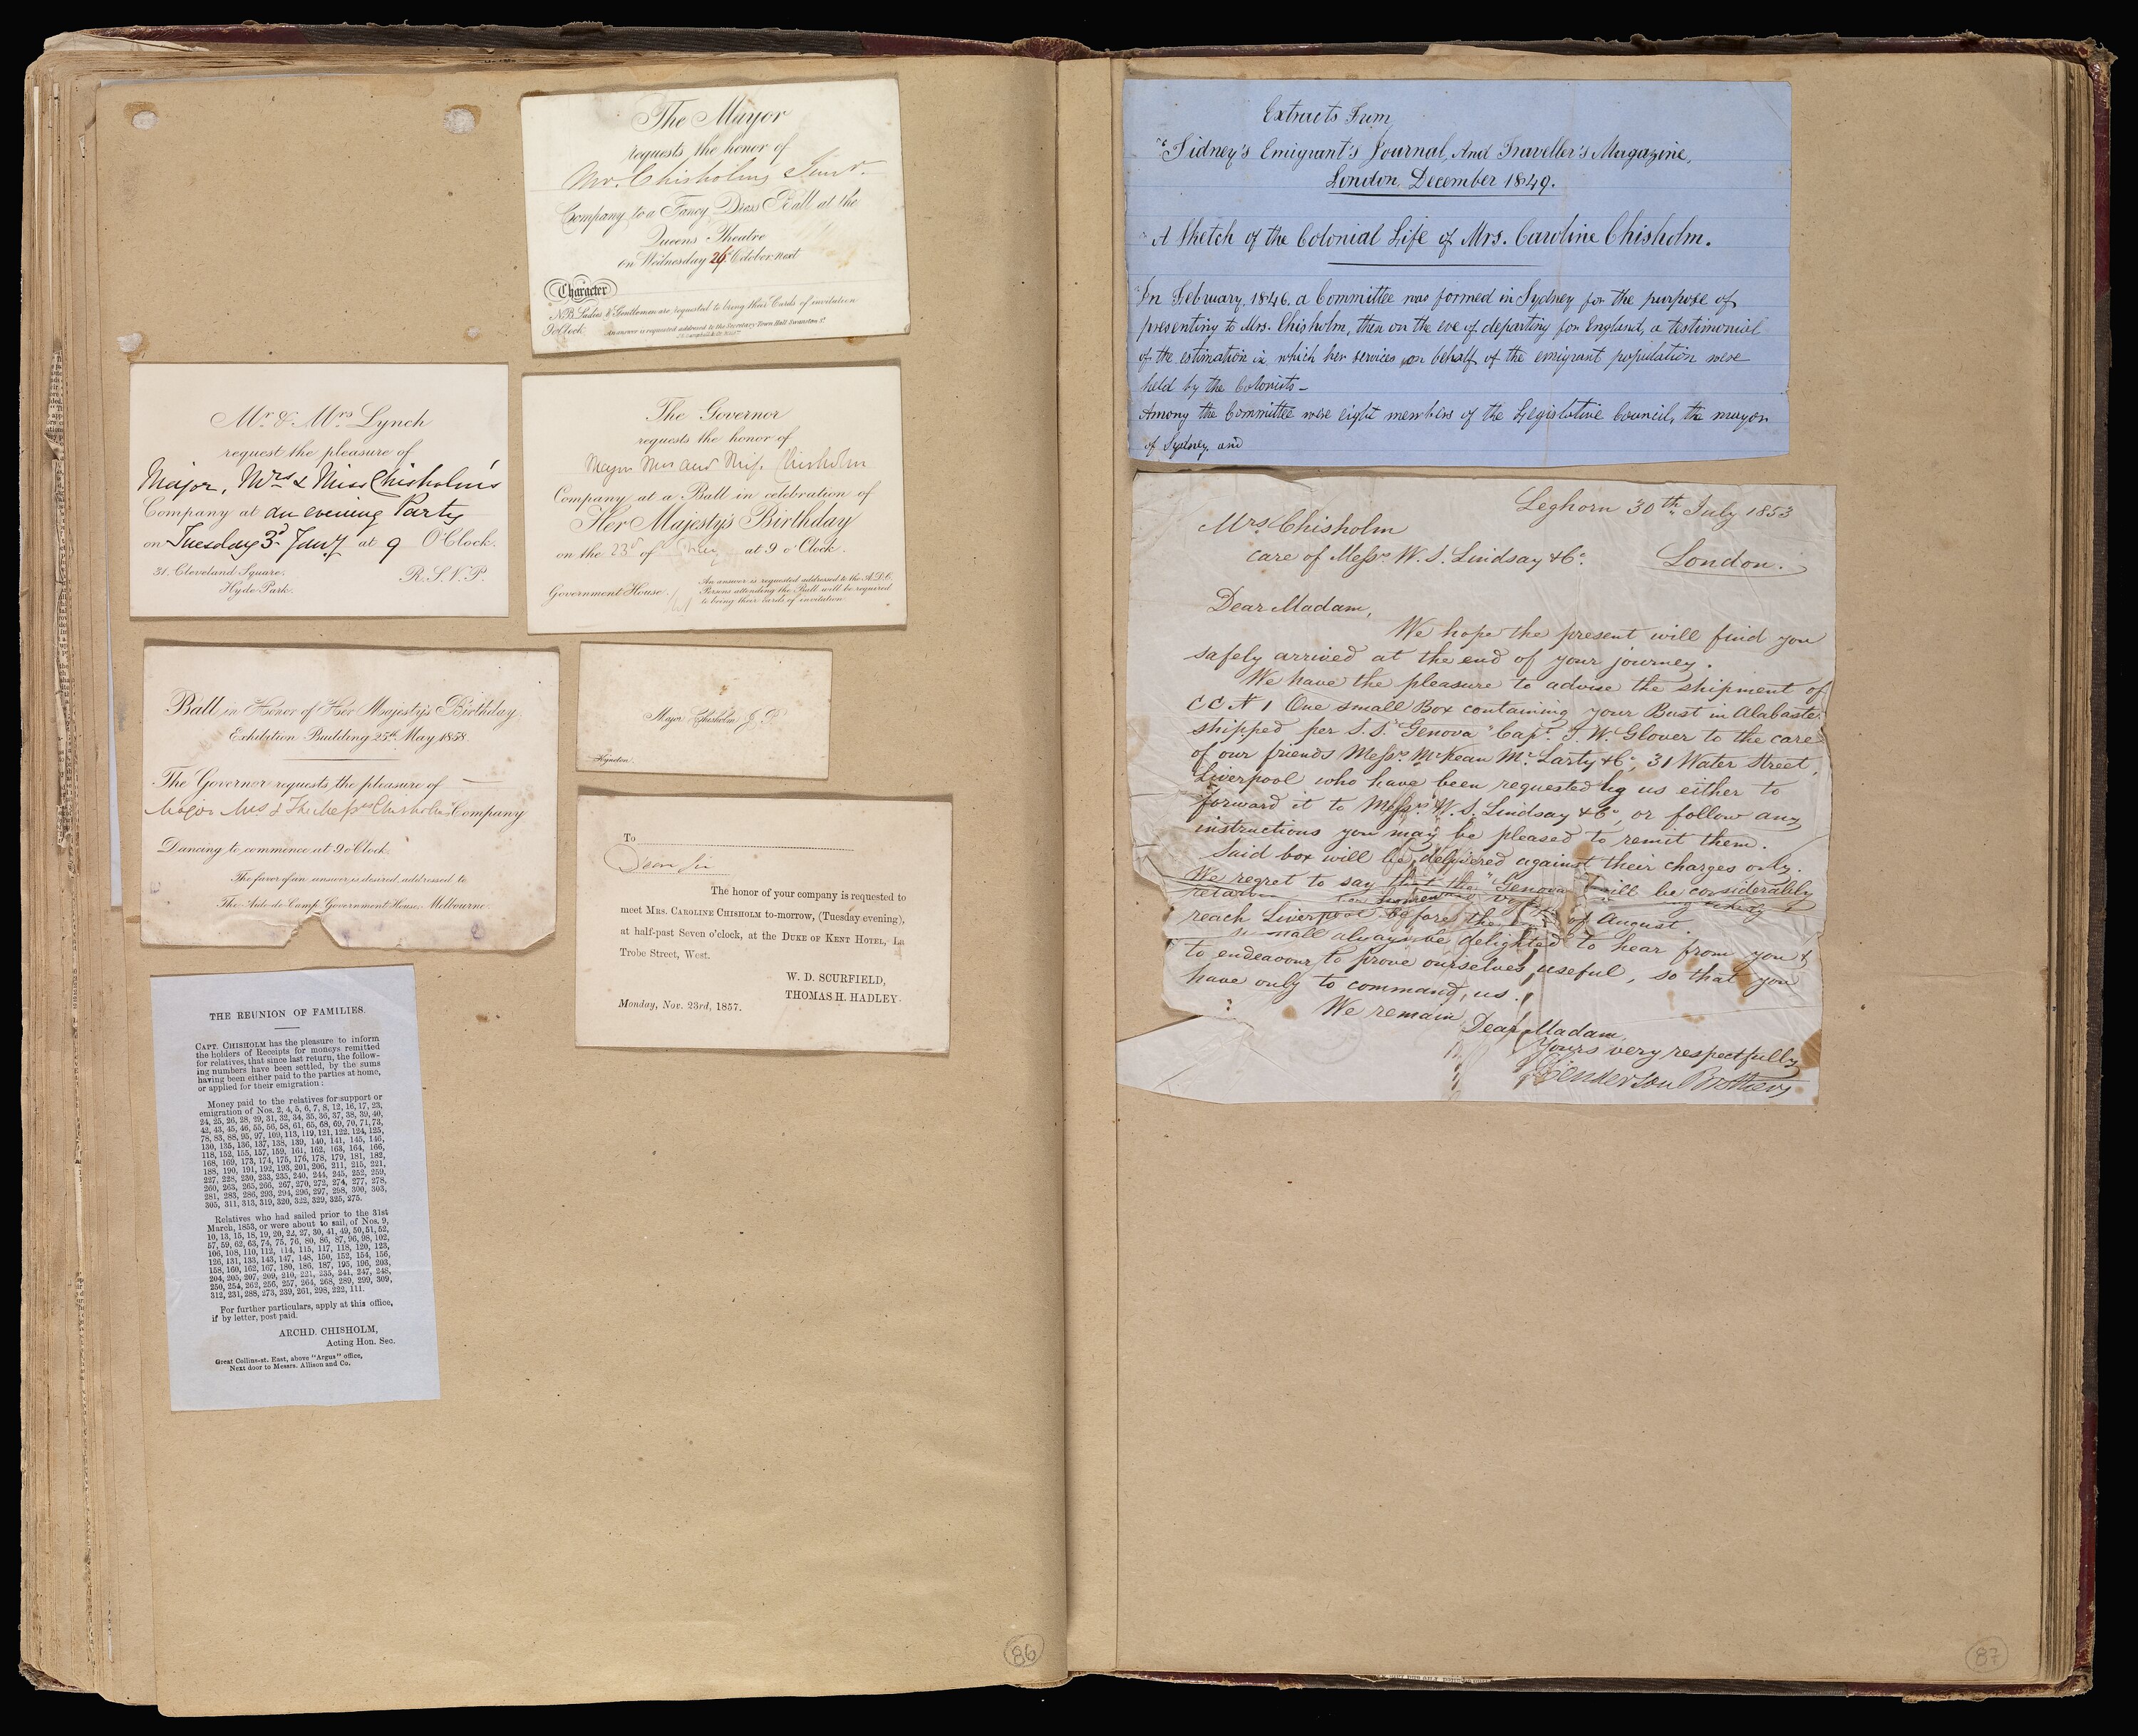 The Mayor
requests the honor of
Mr. Chisholms Senr.
Company to a Fancy Dress Ball at the
Queens Theatre
on Wednesday 26 October next
Character
N.B. Ladies & Gentlemen are requested to bring their Cards of invitation
9 o'Clock. An answer is requested addressed to the Secretary Town Hall Swanston St.
Mr. & Mrs. Lynch
request the pleasure of
Major, Mrs & Miss Chisholm's
Company at an evening Party
on Tuesday 3d Jany at 9 O'Clock.
31. Cleveland Square.
Hyde Park.
R.S.V.P.
The Governor
requests the honor of
Major Mrs and Miss Chisholm
Company at a Ball in celebration of
Her Majesty's Birthday
on the 23d of May at 9 o'Clock.
Government House.
An answer is requested addressed to the A.D.C.
Persons attending the Ball will be required
to bring their cards of invitation.
Ball in Honor of Her Majesty's Birthday
Exhibition Building 25th May 1858
The Governor requests the pleasure of
Major Mrs & The Messrs Chisholms Company
Dancing to commence at 9 o'Clock
The favor of an answer is desired addressed to
The Aide-de-Camp Government House, Melbourne.
Major Chisholm J.P.
Kyneton.
To
Dear Sir
The honor of your company is requested to
meet MRS. CAROLINE CHISHOLM to-morrow, (Tuesday evening),
at half-past Seven o'clock, at the DUKE OF KENT HOTEL, La
Trobe Street, West.
W. D. SCURFIELD,
THOMAS H. HADLEY.
Monday, Nov. 23rd, 1857.
THE REUNION OF FAMILIES.
CAPT. CHISHOLM has the pleasure to inform
the holders of Receipts for moneys remitted
for relatives, that since last return, the follow-
ing numbers have been settled, by the sums
having been either paid to the parties at home,
or applied for their emigration:
Money paid to the relatives for support or
emigration of Nos. 2, 4, 5, 6, 7, 8, 12, 16, 17, 23,
24, 25, 26, 28, 29, 31, 32, 34, 35, 36, 37, 38, 39, 40,
42, 43, 45, 46, 55, 56, 58, 61, 65, 68, 69, 70, 71, 73,
78, 83, 88, 95, 97, 109, 113, 119, 121, 122, 124, 125,
130, 135, 136, 137, 138, 139, 140, 141, 145, 146,
118, 152, 155, 157, 159, 161, 162, 163, 164, 166,
168, 169, 173, 174, 175, 176, 178, 179, 181, 182,
188, 190, 191, 192, 193, 201, 206, 211, 215, 221,
227, 228, 230, 233, 235, 240, 244, 245, 252, 259,
260, 263, 265, 266, 267, 270, 272, 274, 277, 278,
281, 283, 286, 293, 294, 296, 297, 298, 300, 303,
305, 311, 313, 319, 320, 322, 329, 325, 275.
Relatives who had sailed prior to the 31st
March, 1853, or were about to sail, of Nos. 9,
10, 13, 15, 18, 19, 20, 22, 27, 30, 41, 49, 50, 51, 52,
57, 59, 62, 63, 74, 75, 76, 80, 86, 87, 96, 98, 102,
106, 108, 110, 112, 114, 115, 117, 118, 120, 123,
126, 131, 133, 143, 147, 148, 150, 152, 154, 156,
158, 160, 162, 167, 180, 186, 187, 195, 196, 203,
204, 205, 207, 209, 210, 221, 235, 241, 247, 248,
250, 254, 262, 256, 257, 264, 268, 289, 299, 309,
312, 231, 288, 273, 239, 261, 298, 222, 111.
For further particulars, apply at this office,
if by letter, post paid.
ARCHD. CHISHOLM,
Acting Hon. Sec.
Great Collins-st. East, above "Argus" office,
Next door to Messrs. Allison and Co.
86
Extracts From
"Sidney's Emigrant's Journal, And Traveller's Magazine,
London, December 1849.
"A Sketch of the Colonial Life of Mrs. Caroline Chisholm.
"In February, 1846, a Committee was formed in Sydney for the purpose of
presenting to Mrs. Chisholm, then on the eve of departing for England, a testimonial
of the estimation in which her services on behalf of the emigrant population were
held by the Colonists—
Among the Committee were eight members of the Legislative Council, the mayor
of Sydney, and
Leghorn 30th July 1853
Mrs Chisholm
care of Messrs W. S. Lindsay & Co.
London.
Dear Madam,
We hope the present will find you
safely arrived at the end of your journey.
We have the pleasure to advise the shipment of
CC N 1 One small Box containing your Bust in Alabaster
shipped per S.S. "Genova" Capt. J. W. Glover to the care
of our friends Messrs McKean McLarty & Co, 31 Water Street,
Liverpool who have been requested by us either to
forward it to Messrs W. S. Lindsay & Co, or follow any
instructions you may be pleased to remit them.
Said box will be delivered against their charges only.
We regret to say that the "Genova" will be considerably
reach Liverpool before the of August.
shall always be delighted to hear from you &
to endeavour to prove ourselves useful, so that you
have only to command us.
We remain
Dear Madam,
Yours very respectfully
Henderson Brothers
87